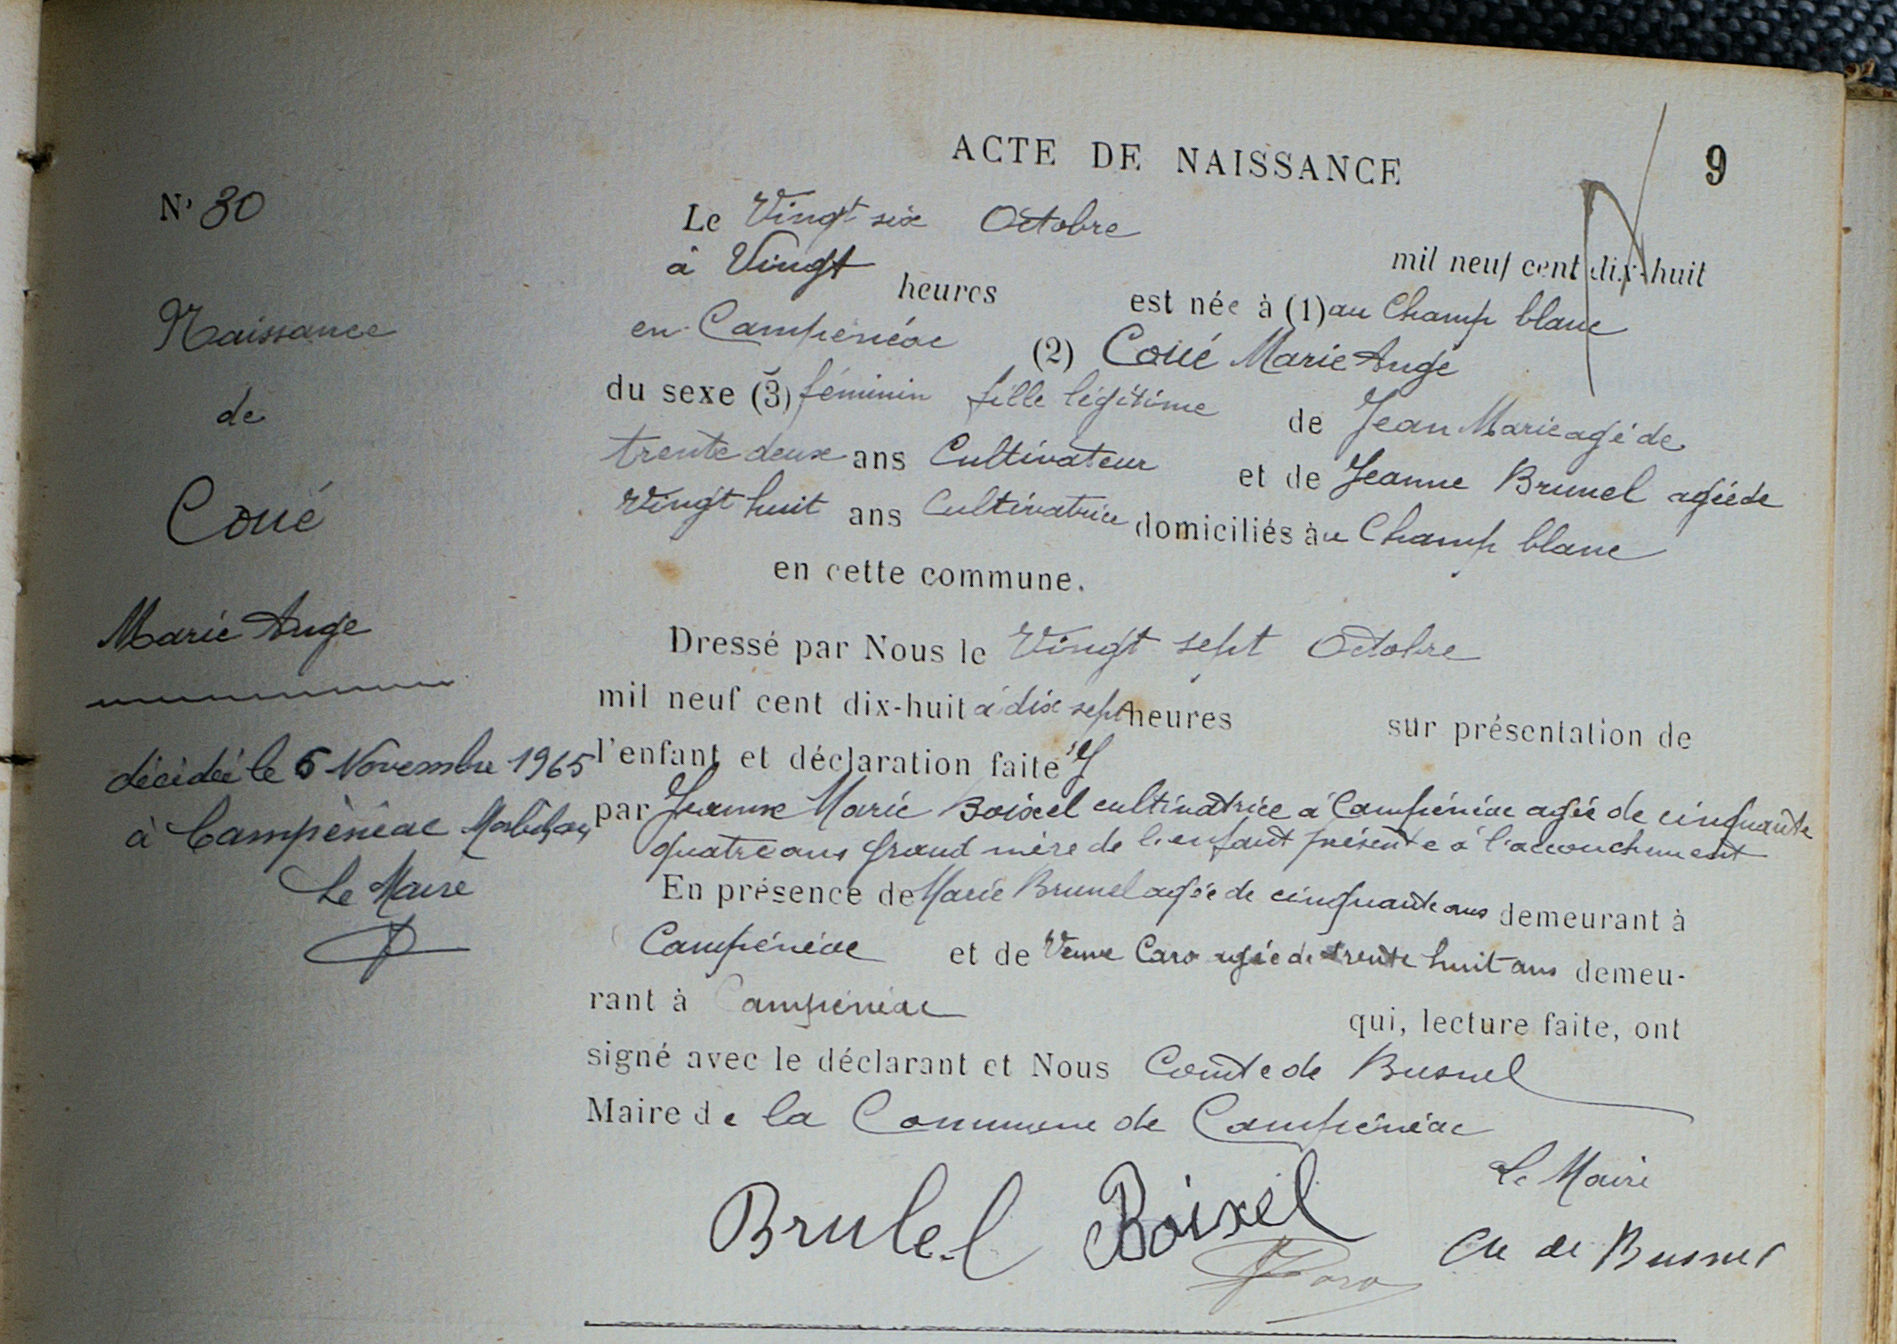 ACTE DE NAISSANCE
9
N° 30
Naissance
de
Coué
Marie Ange
décédée le 6 Novembre 1965
à Campénéac Morbihan
Le Maire
Le Vingt six Octobre mil neuf cent dix-huit
à Vingt heures est née à (1) au Champ blanc
en Campénéac (2) Coué Marie Ange
du sexe (3) féminin fille légitime de Jean Marie agé de
trente deux ans Cultivateur et de Jeanne Brunel agée de
Vingt huit ans Cultivatrice domiciliés au Champ blanc
en cette commune.
Dressé par Nous le Vingt sept Octobre
mil neuf cent dix-huit à dix sept heures sur présentation de
l'enfant et déclaration faite
par Jeanne Marie Boixel cultivatrice à Campénéac agée de cinquante
quatre ans grand mère de l'enfant présente à l'accouchement
En présence de Marie Brunel agée de cinquante ans demeurant à
Campénéac et de Veuve Caro agée de trente huit ans demeu-
rant à Campénéac qui, lecture faite, ont
signé avec le déclarant et Nous Comte de Busnel
Maire de la Commune de Campénéac
Le Maire
Brulel Boixel Cte de Busnel
Caro